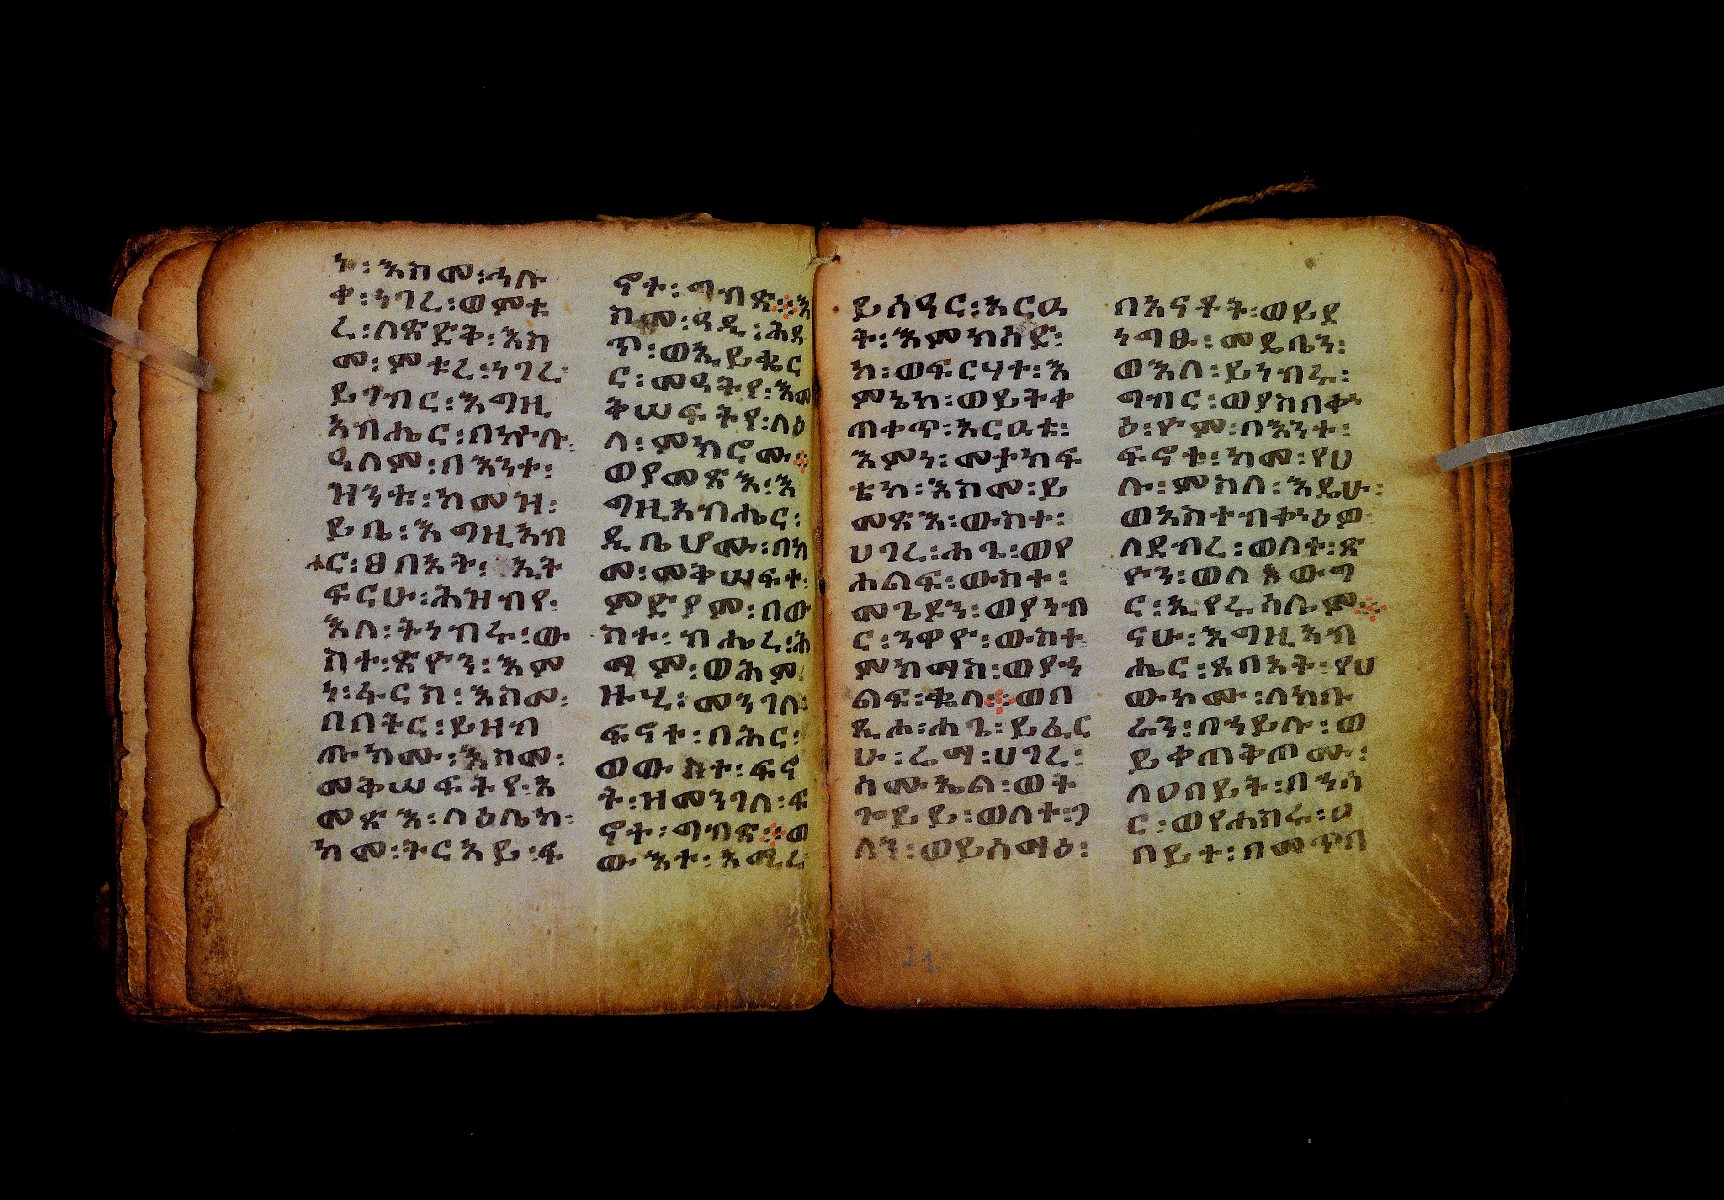 ኑ፡እስመ፡ኅሉ
ቀ፡ነገረ፡ወምቱ
ረ፡ለጽድቅ፡እስ
መ፡ምቱረ፡ነገረ፡
ይገብር፡እግዚ
አብሔር፡በኵሉ፡
ዓለም፡በእንተ፡
ዝንቱ፡ከመዝ፡
ይቤ፡እግዚአብ
ሔር፡ፀባኦት፡ኢት
ፍርሁ፡ሕዝብየ፡
እለ፡ትነብሩ፡ው
ስተ፡ጽዮን፡እም
ነ፡ፋርስ፡እስመ፡
በበትር፡ይዘብ
ጡክሙ፡እስመ፡
መቅሠፍትየ፡አ
መጽእ፡ላዕሌከ፡
ከመ፡ትርአይ፡ፍ
ኖተ፡ግብጽ።እ
ስመ፡ዓዲ፡ሕዳ
ጥ፡ወኢይቄር
ር፡መዓትየ፡እመ
ቅሠፍትየ፡ላዕ
ለ፡ምክሮሙ።
ወያመጽእ፡እ
ግዚአብሔር፡
ዲቤሆሙ፡በከ
መ፡መቅሠፍተ፡
ምድያም፡በው
ስተ፡ብሔረ፡ሕ
ማም፡ወሕም
ዙሂ፡መንገለ፡
ፍኖተ፡በሕር፡
ወውስተ፡ፍኖ
ት፡ዝመንገለ፡ፍ
ኖተ፡ግብጽ።ወ
ውእተ፡አሚረ
ይሰዓር፡አርዑ
ት፡እምክሳድ፡
ከ፡ወፍርሃተ፡እ
ምኔከ፡ወይትቀ
ጠቀጥ፡አርዑቱ፡
እምነ፡መታክፍ
ቲከ፡እስመ፡ይ
መጽእ፡ውስተ፡
ሀገረ፡ሐጌ፡ወየ
ሐልፍ፡ውስተ፡
መጌዶን፡ወያነብ
ር፡ንዋዮ፡ውስተ
ምክማስ፡ወያኀ
ልፍ፡ቄለ።ወበ
ጺሖ፡ሐጌ፡ይፈር
ሁ፡ራማ፡ሀገረ፡
ሳሙኤል፡ወት
ጐይይ፡ወለተ፡ጋ
ሌን፡ወይሰማዕ፡
በአናቶት፡ወይደ
ነግፁ፡መደቤን፡
ወእለ፡ይነብሩ፡
ግብር፡ወያስበቍ
ዕ፡ዮም፡በእንተ፡
ፍኖቱ፡ከመ፡የሀ
ሉ፡ምስለ፡እዴሁ፡
ወአስተብቍዕዎ
ለደብረ፡ወለተ፡ጽ
ዮን፡ወለአውግ
ር፡ኢየሩሳሌም።
ናሁ፡እግዚአብ
ሔር፡ጸባኦት፡የሀ
ውከሙ፡ለክቡ
ራን፡በኀይሉ፡ወ
ይቀጠቅጦሙ፡